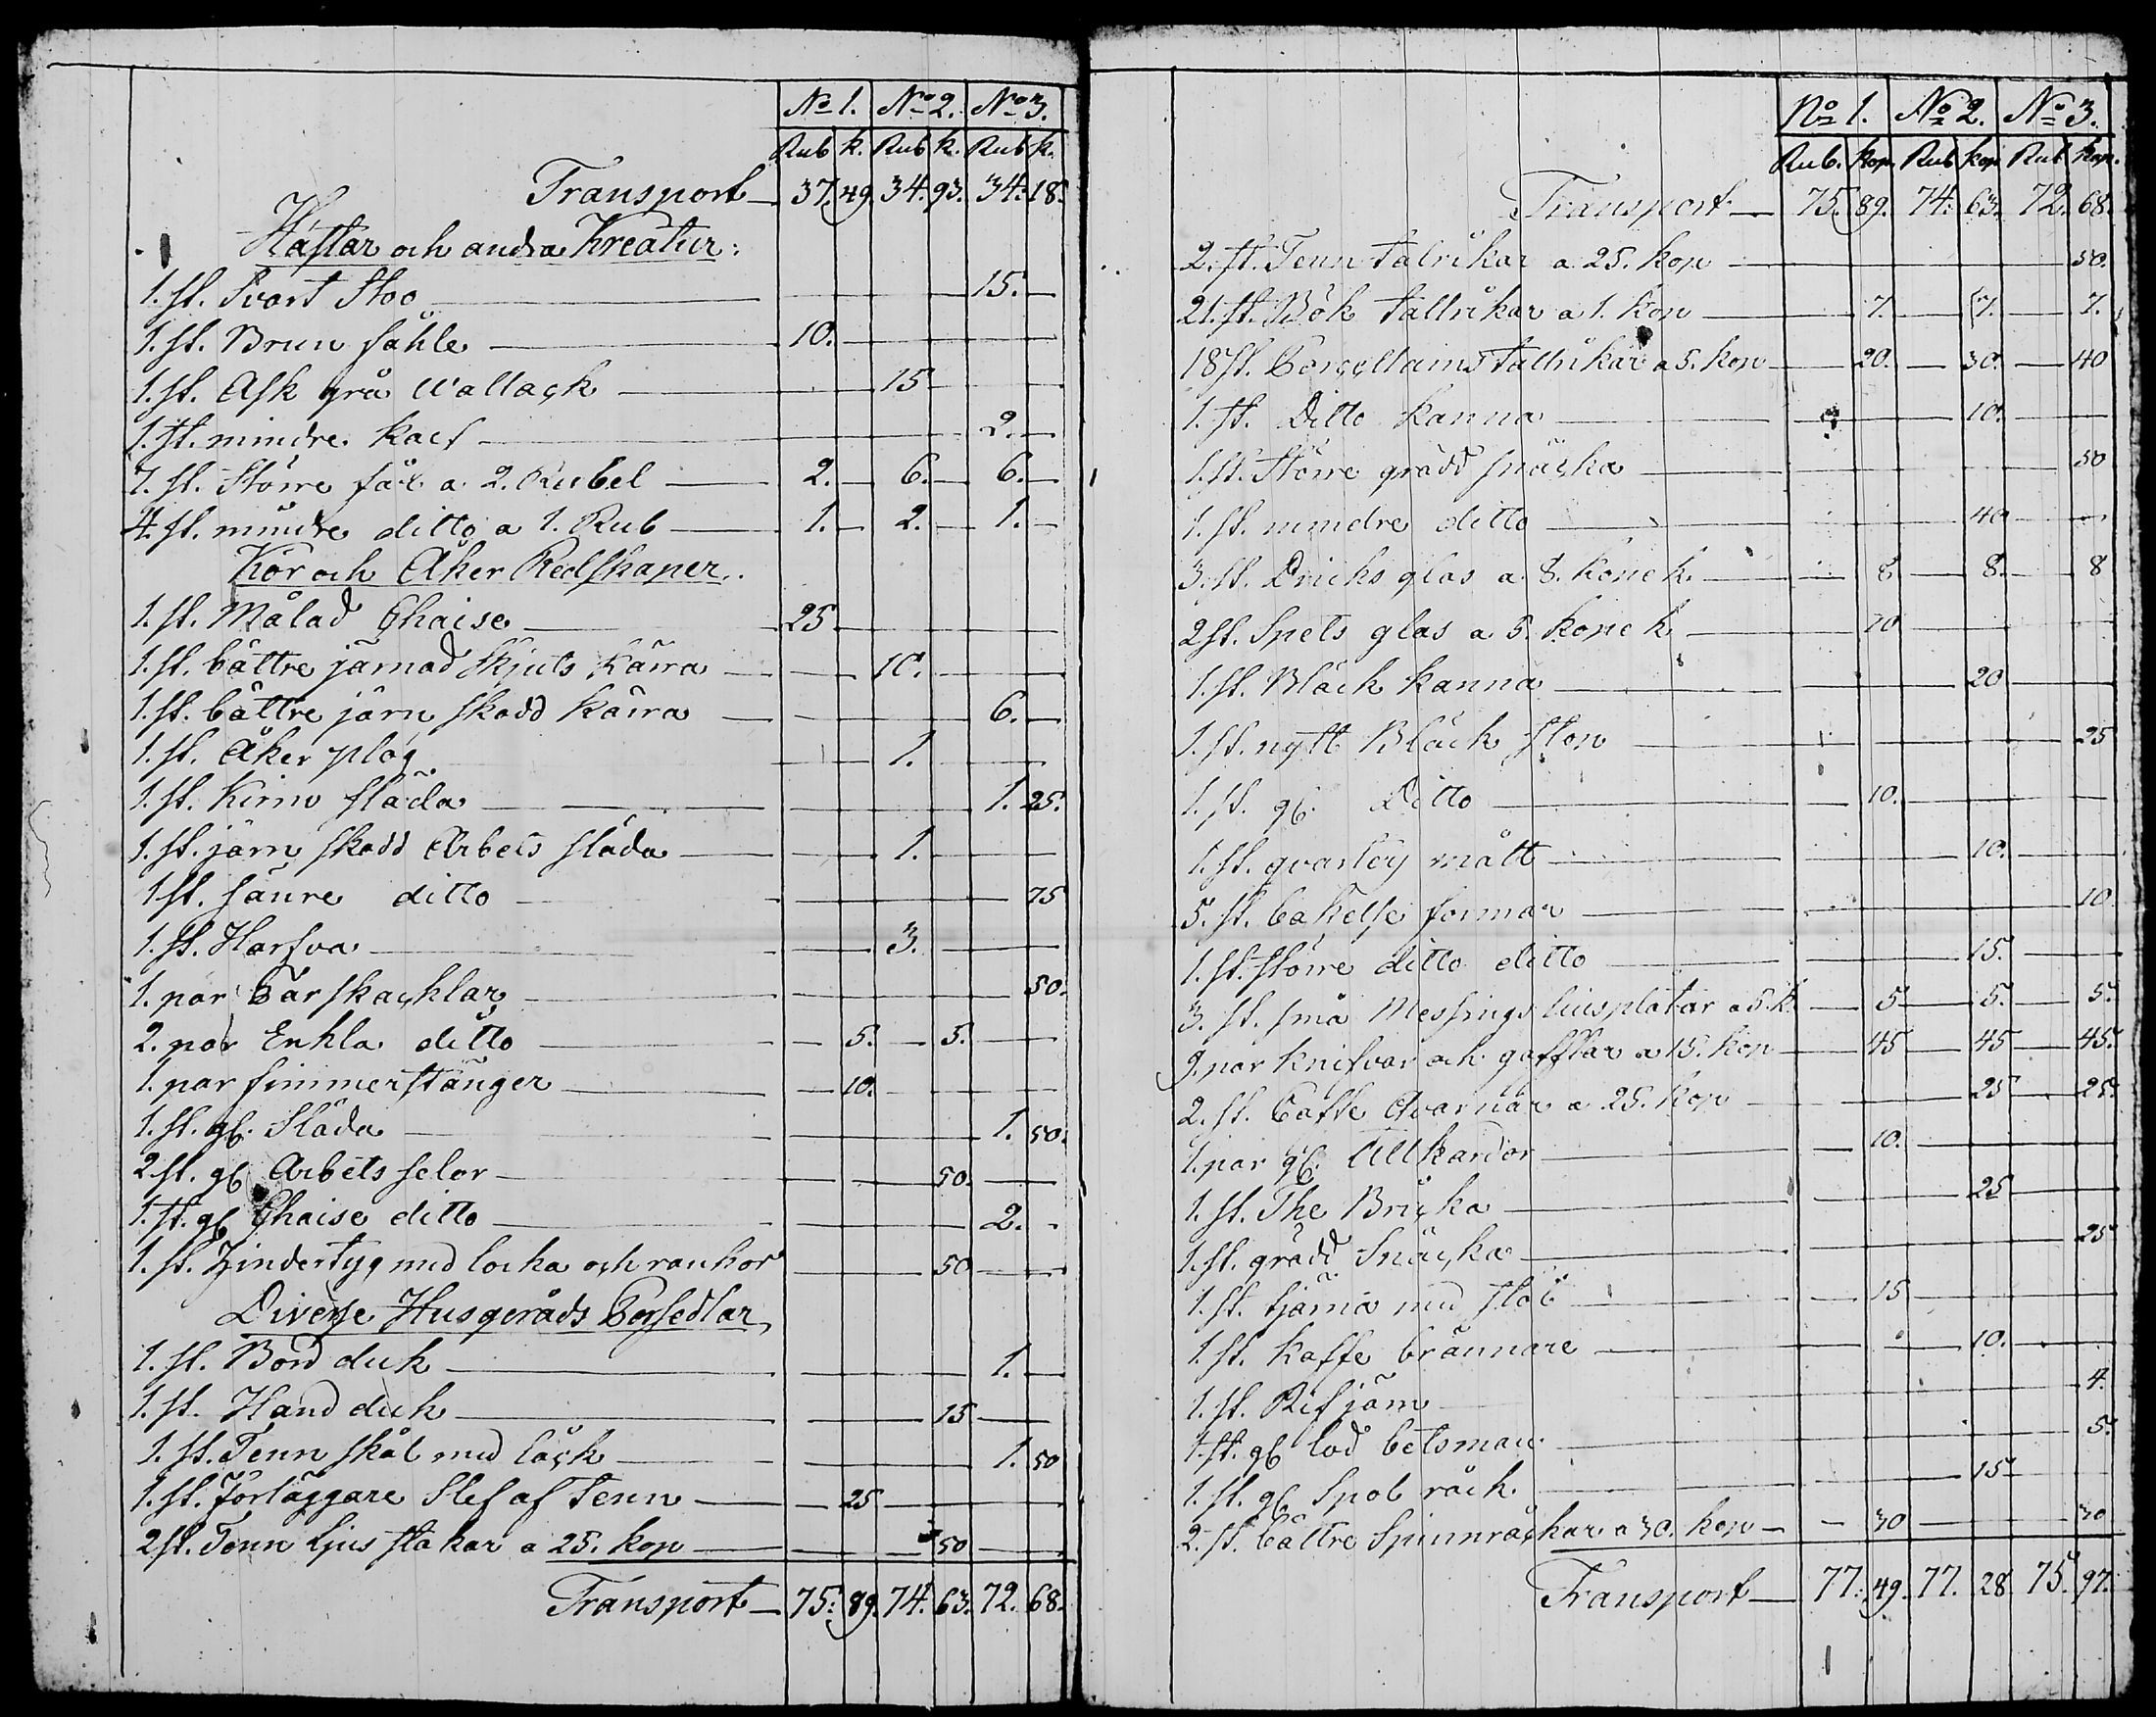 No 1. No 2. No 3.
Rub k. Rub k. Rub k.
Transport 37. 49. 34. 93. 34. 18.
Hästar och andra Kreatur:
1. st. Svart Stoo 15.
1. st. Brun fåhle 10.
1. st. Ask grå Wallack 15
1. st. mindre kalf 2.
7. st. Större får a 2. Rubel 2. 6. 6.
4. st. mindre ditto a 1. Rub 1. 2. 1.
Kör och Åker Redskaper.
1. st. Målad Chaise 25
1. st. bättre järnad Skjuts kärra 10.
1. st. bättre järn skodd kärra 6.
1. st. Åker plog 1.
1. st. Kirno släda 1. 25.
1. st. järn skodd Arbets släda 1.
1 st. sämre ditto 75
1. st. Harfva 3.
1. par Par skacklar 50.
2. par Enkla ditto 5. 5.
1. par fimmerstänger 10.
1. st. gl. Släda 1. 50.
2 st. gl Arbets selor 50.
1. st. gl Chaise ditto 2.
1. st. Zindertyg med locka och rankor 50
Diverse Husgeråds Persedlar
1. st. Bord duk 1.
1. st. Hand duk 15
1. st. Tenn skål med låck 1. 50
1. st. Förläggare Slef af Tenn 25
2 st. Tenn ljus stakar a 25. kop 50
Transport 75. 89. 74. 63. 72. 68.
No 1. No 2. No 3.
Rub. kop. Rub kop Rub kop.
Transport 75. 89. 74. 63. 72. 68.
2. st. Tenn talrikar a 25. kop 50.
21. st. Bök tallrikar a 1. kop 7. 7. 7.
18 st. Porcellains tallrikar a 5. kop 20. 30. 40
1. st. Ditto kanna 10.
1. st. Större grädd snäcka 50
1. st. mindre ditto 40
3. st. Dricks glas a 8. kopek 8 8. 8
2 st. Spets glas a 5. kopek 10
1. st. Bläck kanna 20
1. st. nytt Bläck stop 25
1. st. gl. Ditto 10.
1. st. qvarters mått 10.
5. st. bakelse formar 10
1. st. större ditto ditto 15.
3. st. små Messings liusplåtar a 5. k. 5 5. 5.
9. par knifvar och gafflar a 15. kop 45 45 45.
2. st. Caffe Qvarnar a 25. kop 25 25.
1. par gl. Ullkardor 10.
1. st. The Bricka 25
1. st. grädd Snäcka 25
1. st. tjärna med stäl 15
1. st. Kaffe brännare 10.
1. st. Rif järn 4.
1. st. gl lod betsman 5.
1. st. gl Spol råck 15
2. st. bättre Spinnråckar a 30. kop 30 30
Transport 77. 49. 77. 28 75. 97.